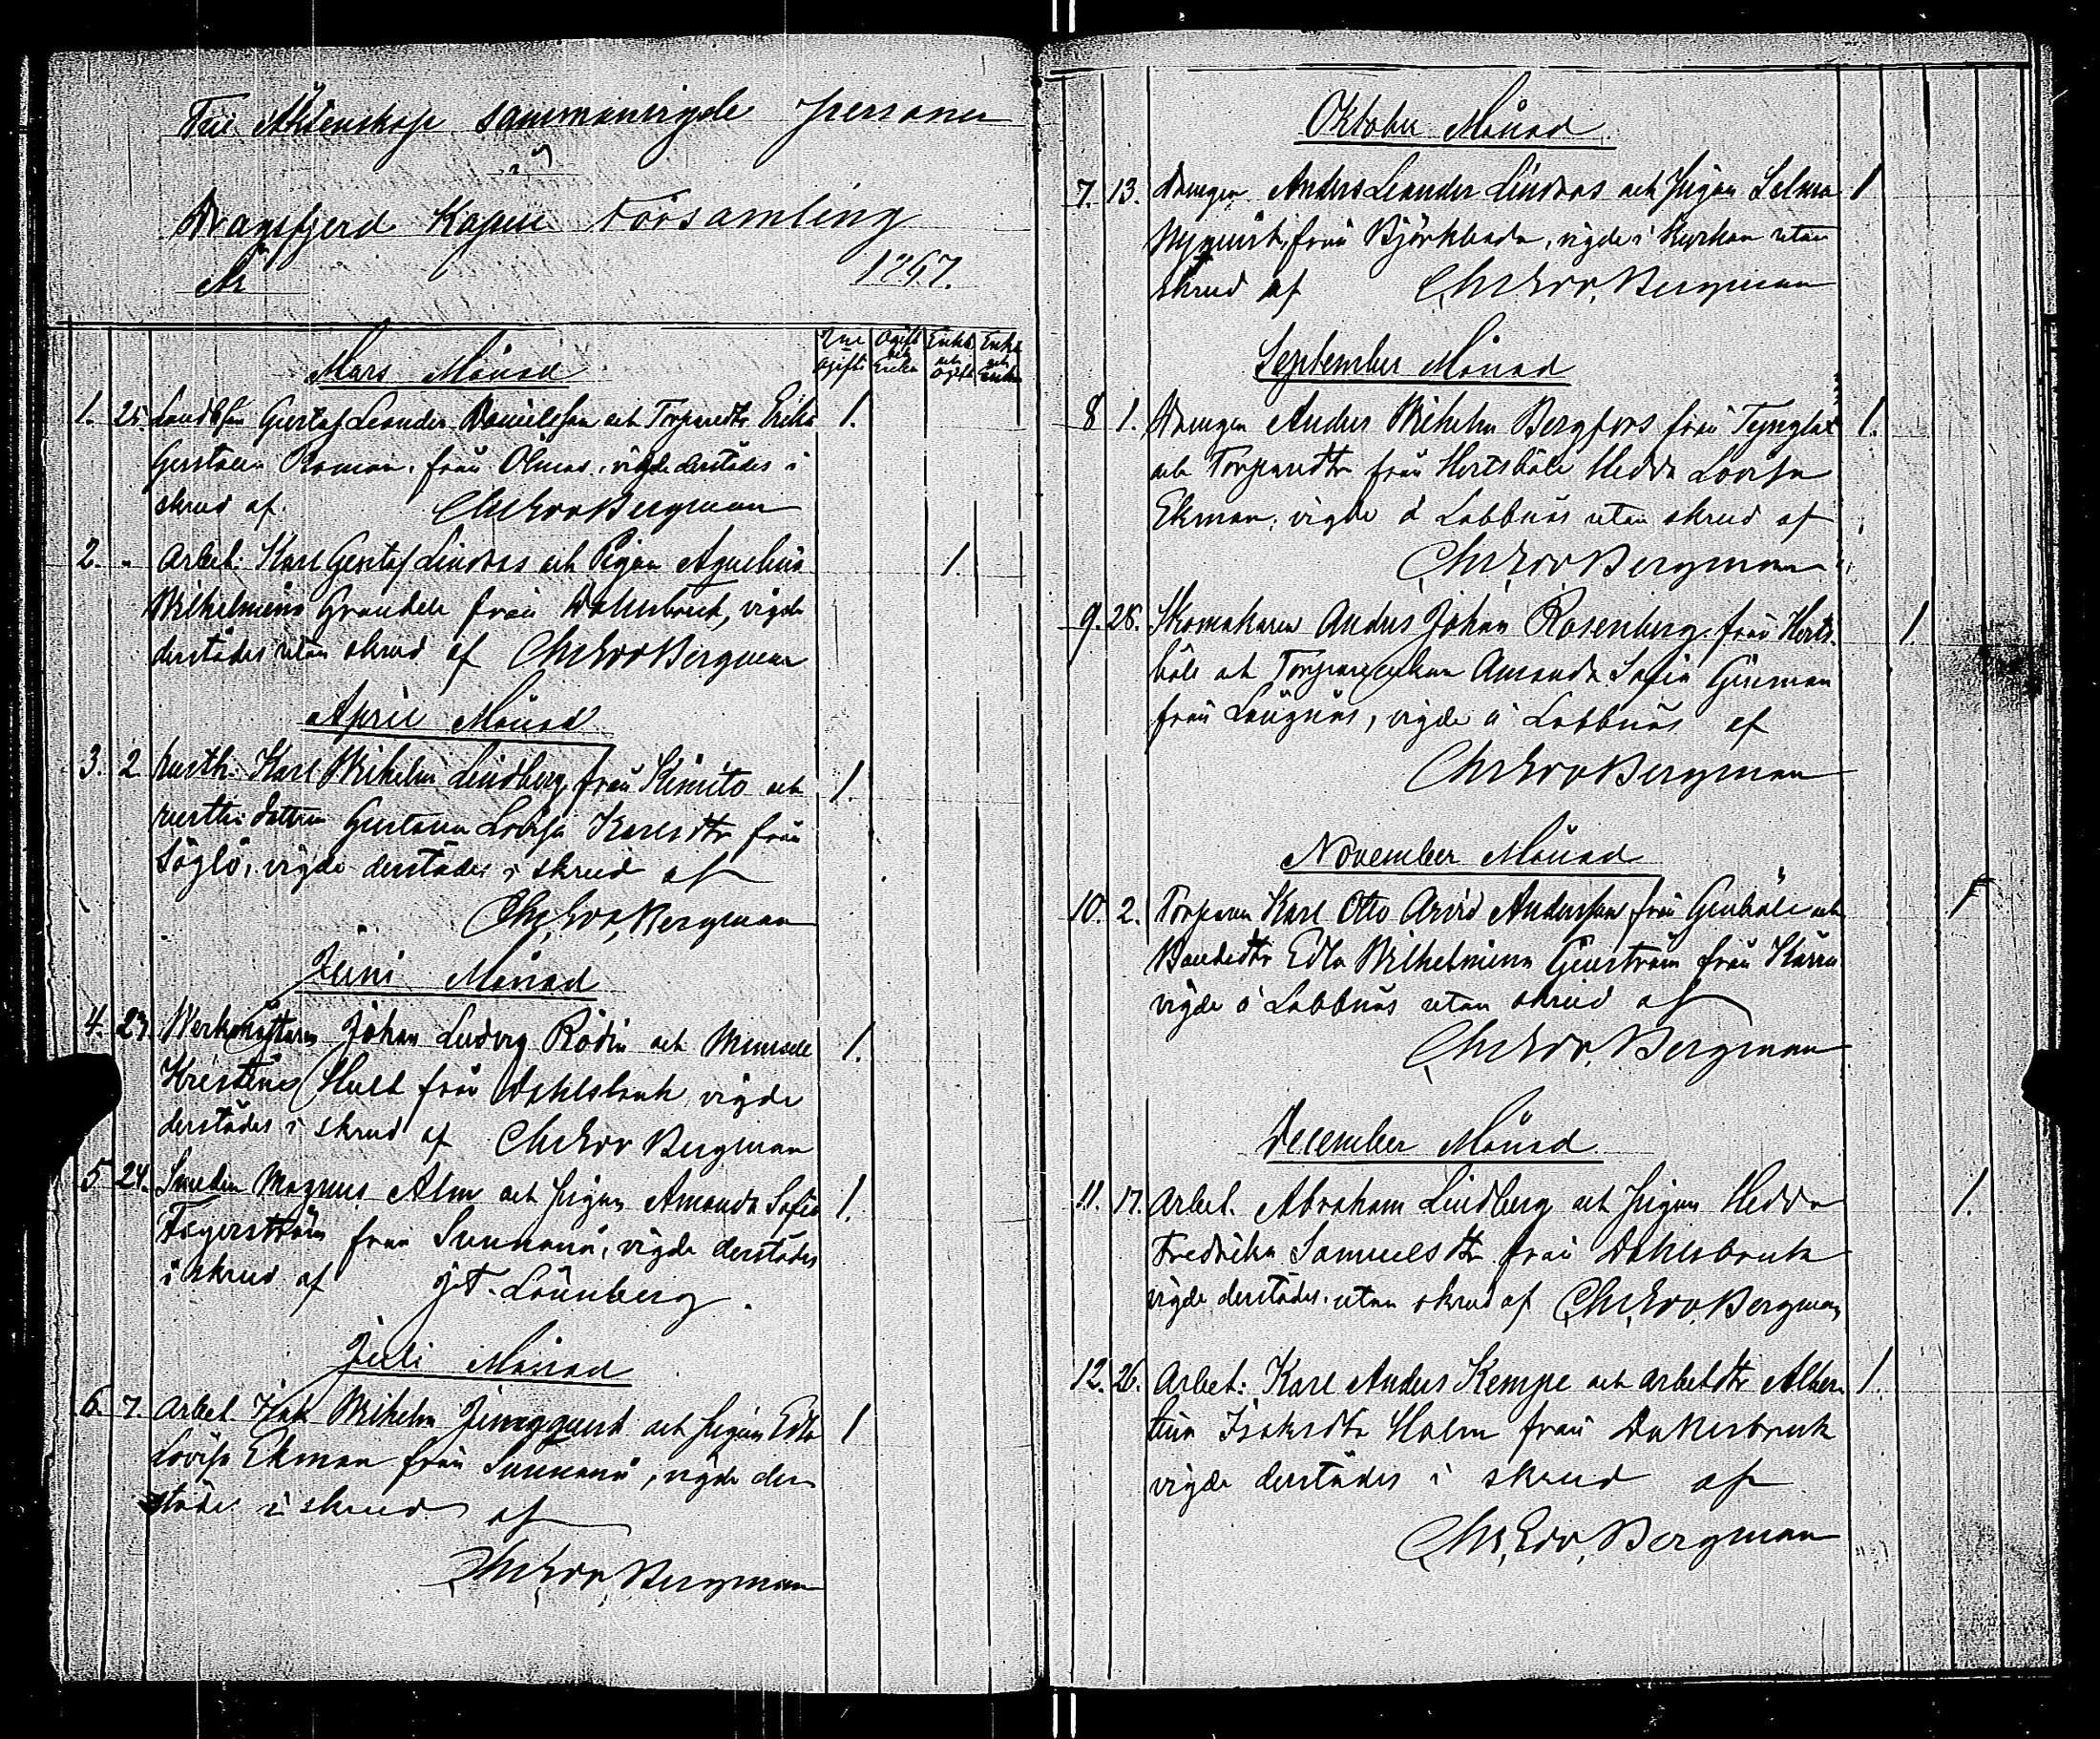 Till Äktenskap sammanvigde personer
i
Dragsfjerd Kapell Församling
År 1897.
Mars Månad
Två ogifte
Ogift och Enka
Enkl. och ogift
Enkl. och Enka
1. 25. Landb:son Gustaf Leander Danielsson och Torparedtr Erika 1.
Gustava Roman, från Ölmos, vigde derstädes i
skrud af Chr. Edv. Bergman
2. " Arbet: Karl Gustaf Lindroos och Pigan Agnelina 1.
Wilhelmina Grandell från Dahlsbruk, vigde
derstädes utan skrud af Chr Edv Bergman
April Månad
3. 2. rusth: Karl Wilhelm Lindberg från Kimito och 1.
rusth: dottern Gustava Lovisa Karlsdtr från
Söglö, vigde derstädes i skrud af
Chr. Edv. Bergman
Juni Månad
4. 23. Werkmästaren Johan Ludvig Rodin och Mamsell 1.
Kristina Hult från Dahlsbruk, vigde
derstädes i skrud af Chr Edv Bergman
5 24. Smeden Magnus Alm och pigan Amanda Sofia 1.
Fagerström från Sunnanå, vigde derstädes
i skrud af Lönnberg.
Juli Månad
6. 7. Arbet. Isak Wilhelm Ljungqvist och pigan Edla 1
Lovisa Ekman från Sunnanå, vigde der
städes i skrud af
Chr Edv. Bergman
Oktober Månad
7. 13. Drengen Anders Leander Lindroos och Pigan Selma 1
Nyqvist, från Björkboda, vigde i Kyrkan utan
skrud af Chr Edv. Bergman
September Månad
8 1. Drengen Anders Wilhelm Bergfors från Tynglax 1.
och Torparedtr från Hertsböle Hedda Lovisa
Ekman, vigde å Labbnäs utan skrud af
Chr Edv Bergman
9. 28. Skomakaren Anders Johan Rosenberg från Herts- 1.
böle och Torpareenkan Amanda Sofia
från Långnäs, vigde å Labbnäs af
Chr Edv Bergman
November Månad
10. 2. Torparen Karl Otto Arvid Andersson från Genböle och 1
Bondedtr Edla Wilhelmina från Kärra
vigde å Labbnäs utan skrud af
Chr Edv. Bergman
December Månad
11. 17. Arbet. Abraham Lindberg och pigan Hedda 1.
Fredrika Samuelsdtr från Dahlsbruk
vigde derstädes utan skrud af Chr. Edv. Bergman
12. 26. Arbet: Karl Anders Kempe och arbetdtr Alber- 1.
tina Isaksdtr Holm från Dahlsbruk
vigde derstädes i skrud af
Chr. Edv. Bergman